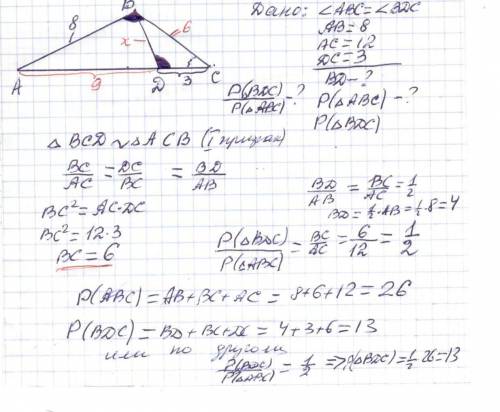 B
8
1
x
6
A
9
D
3
C
Дано: ∠ABC = ∠BDC
AB = 8
AC = 12
DC = 3
BD - ?
P(△ABC) - ?
P(△BDC)
P(BDC)/P(△ABC) - ?
△BCD ∼ △ACB (I признак)
BC/AC = DC/BC = BD/AB
BC² = AC·DC
BC² = 12·3
BC = 6
BD/AB = BC/AC = 1/2
BD = 1/2·AB = 1/2·8 = 4
P(△BDC)/P(△ABC) = BC/AC = 6/12 = 1/2
P(ABC) = AB + BC + AC = 8+6+12 = 26
P(BDC) = BD + BC + DC = 4+3+6 = 13
или по другому
P(BDC)/P(△ABC) = 1/2 => P(△BDC) = 1/2·26 = 13